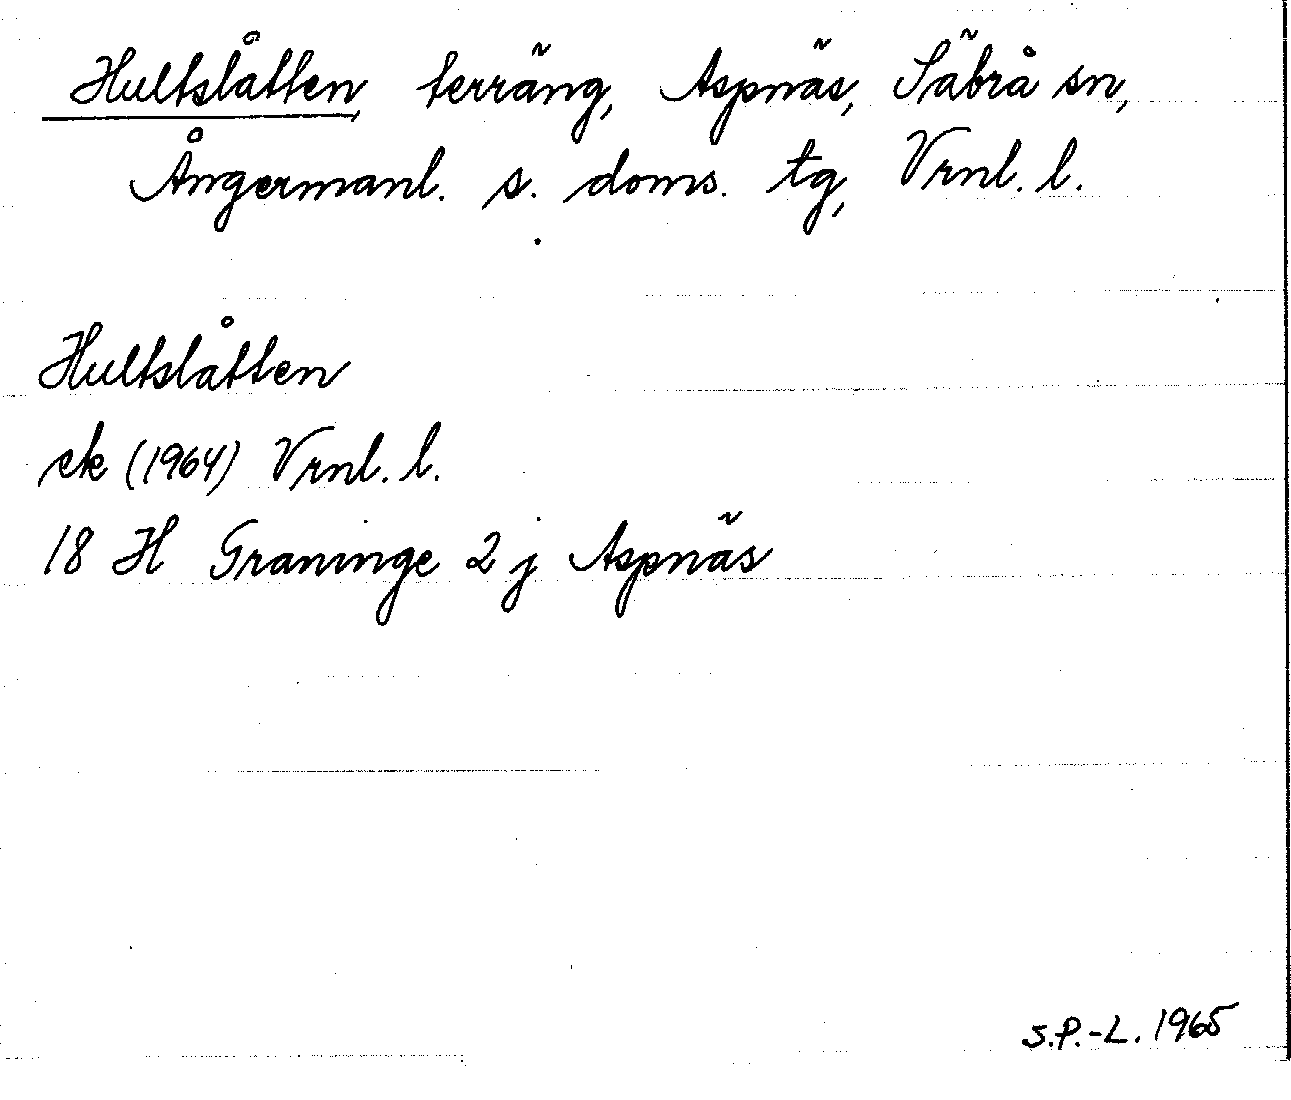 Hultslåtten, terräng, Aspnäs, Säbrå sn,
Ångermanl. s. doms. tg, Vrnl. l.
Hultslåtten
ek (1964) Vrnl. l.
18 H Graninge 2 j Aspnäs
S.P.-L. 1965